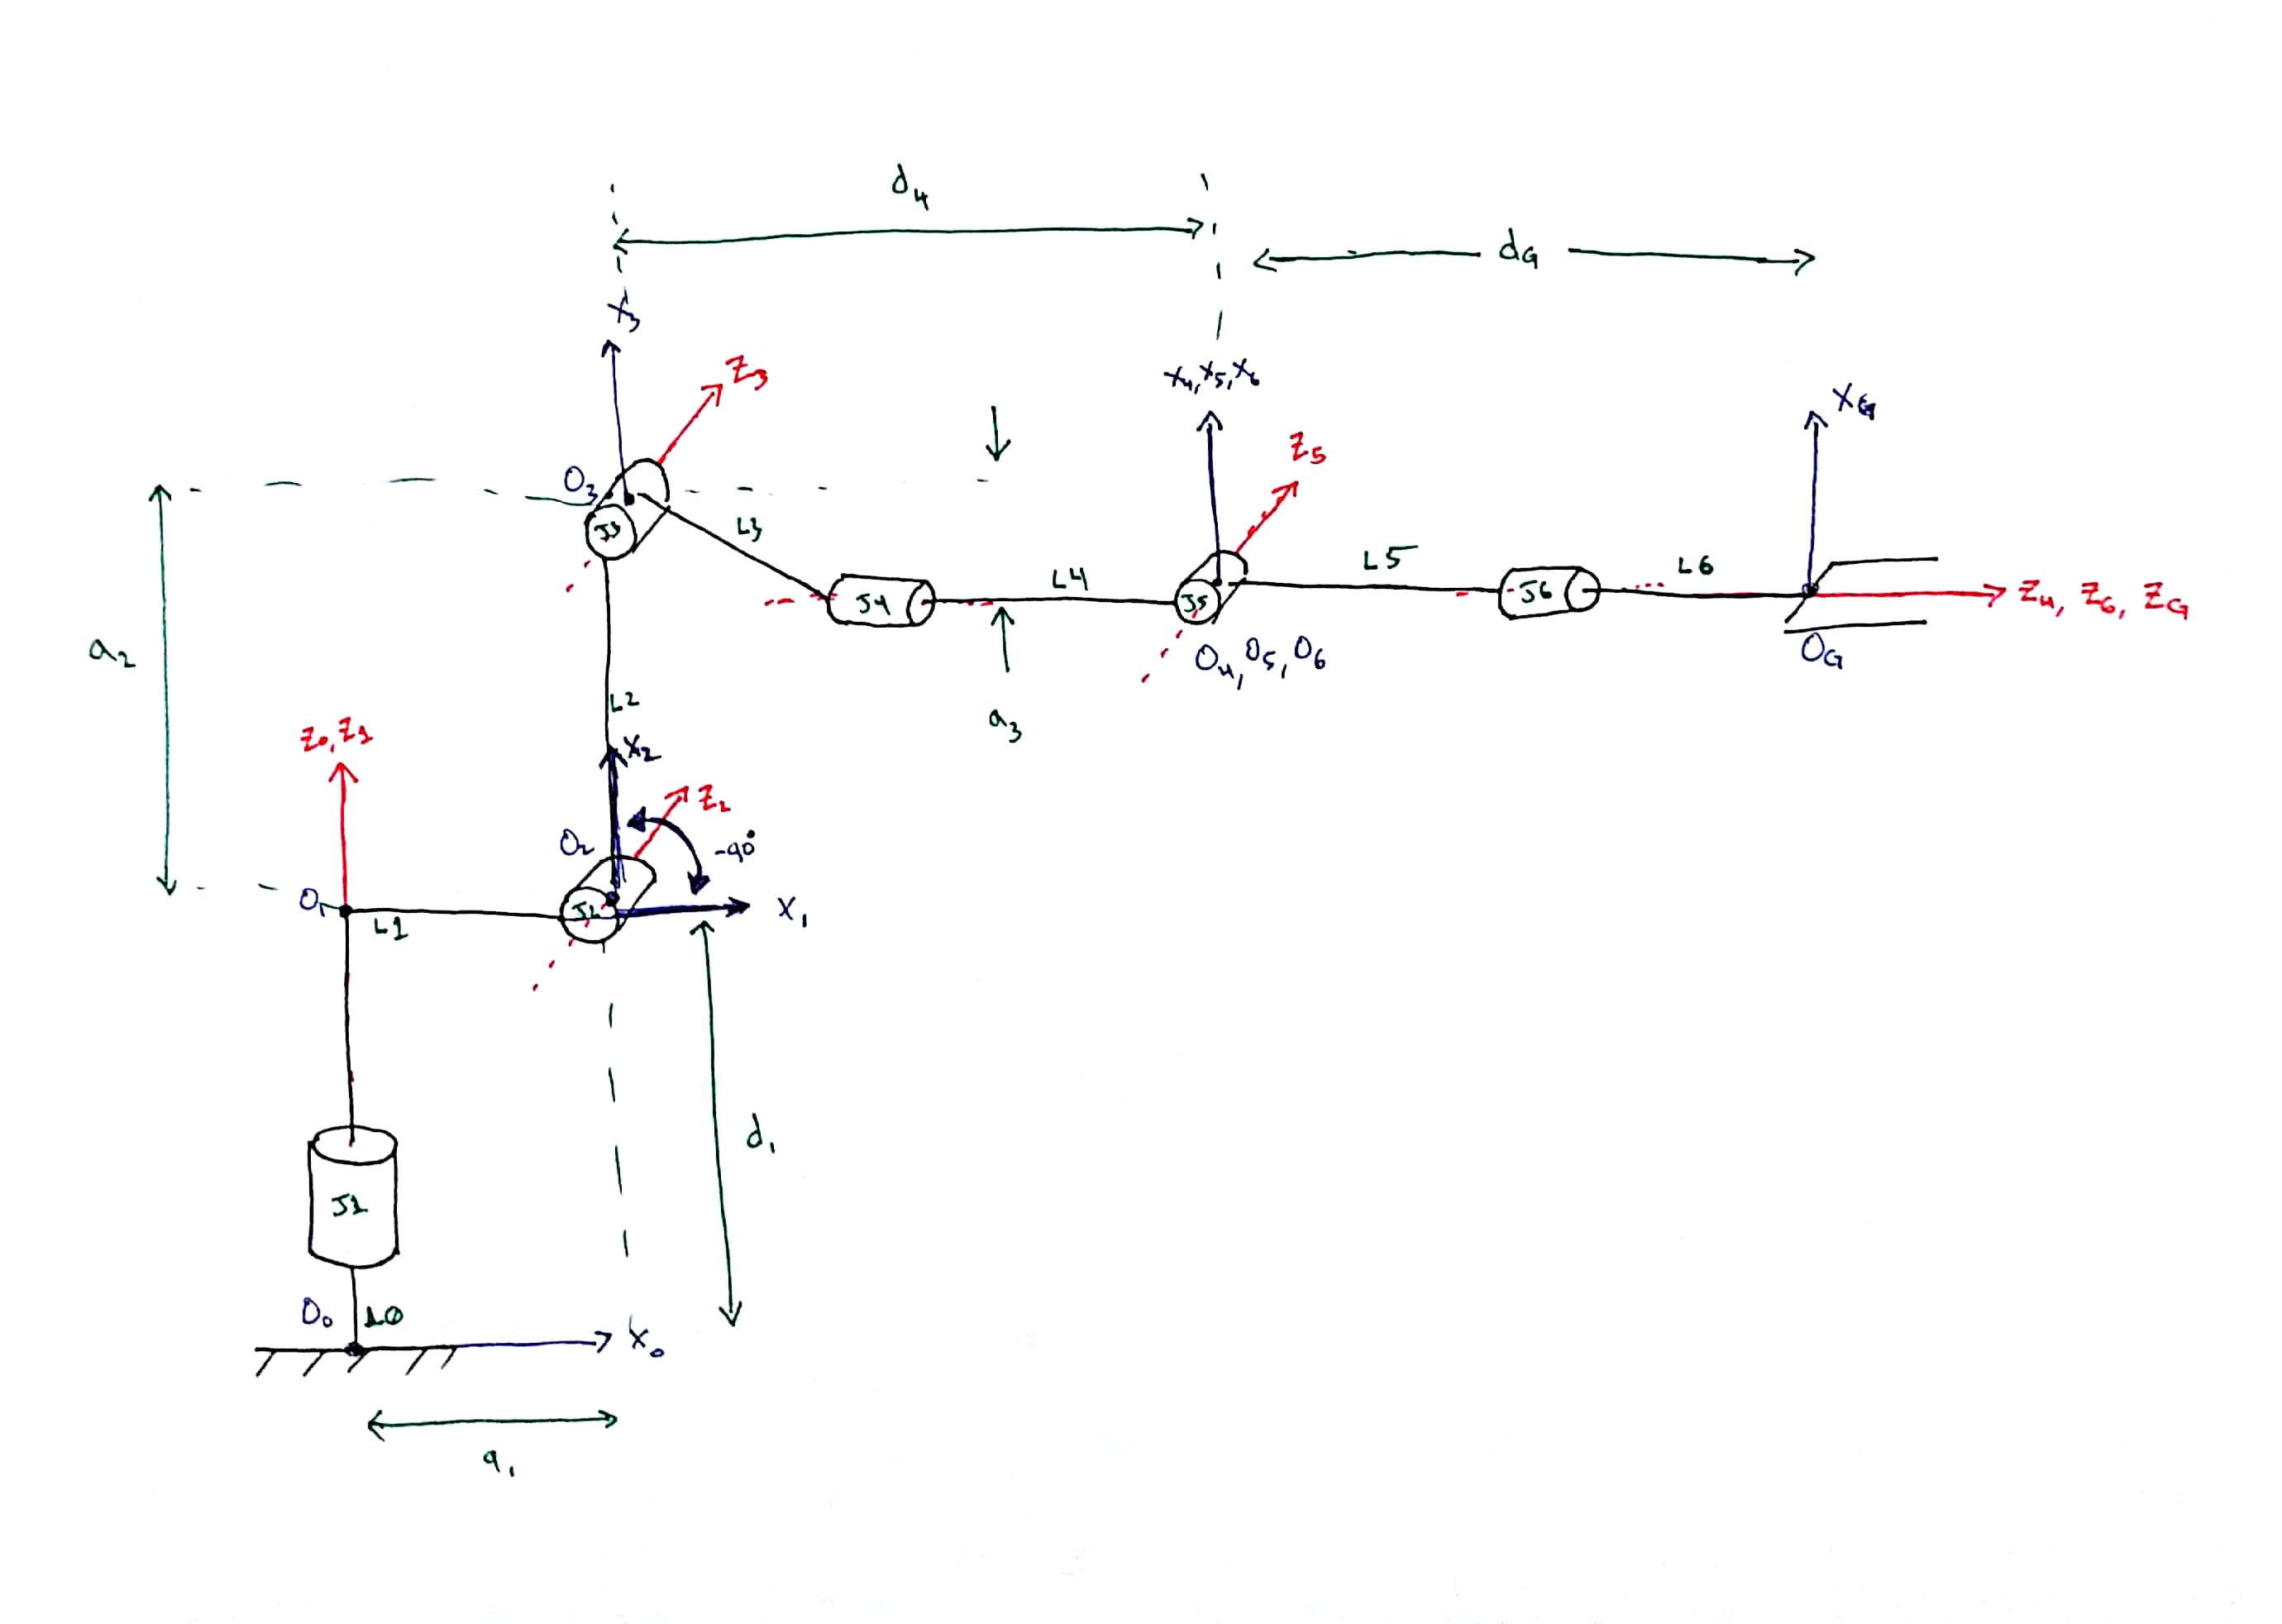 d4
dG
X3
Z3
X4, X5, X6
XG
Z5
O3
J3
L3
J4
L4
J5
L5
J6
L6
Z4, Z6, ZG
O4, O5, O6
OG
a2
a3
L2
Z0, Z1
X2
Z2
O2
-90°
O1
L1
J2
X1
d1
J1
O0
L0
X0
a1